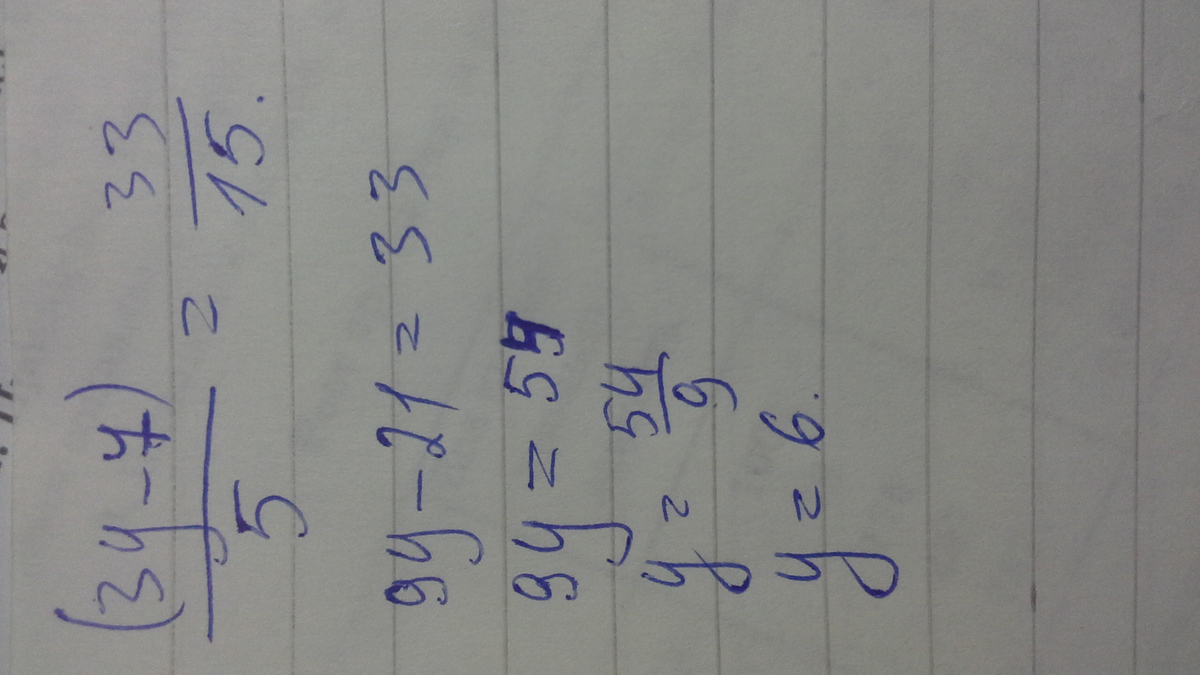 (3y-7)/5 = 33/15.
9y-21=33
9y=54
y=54/9
y=6.